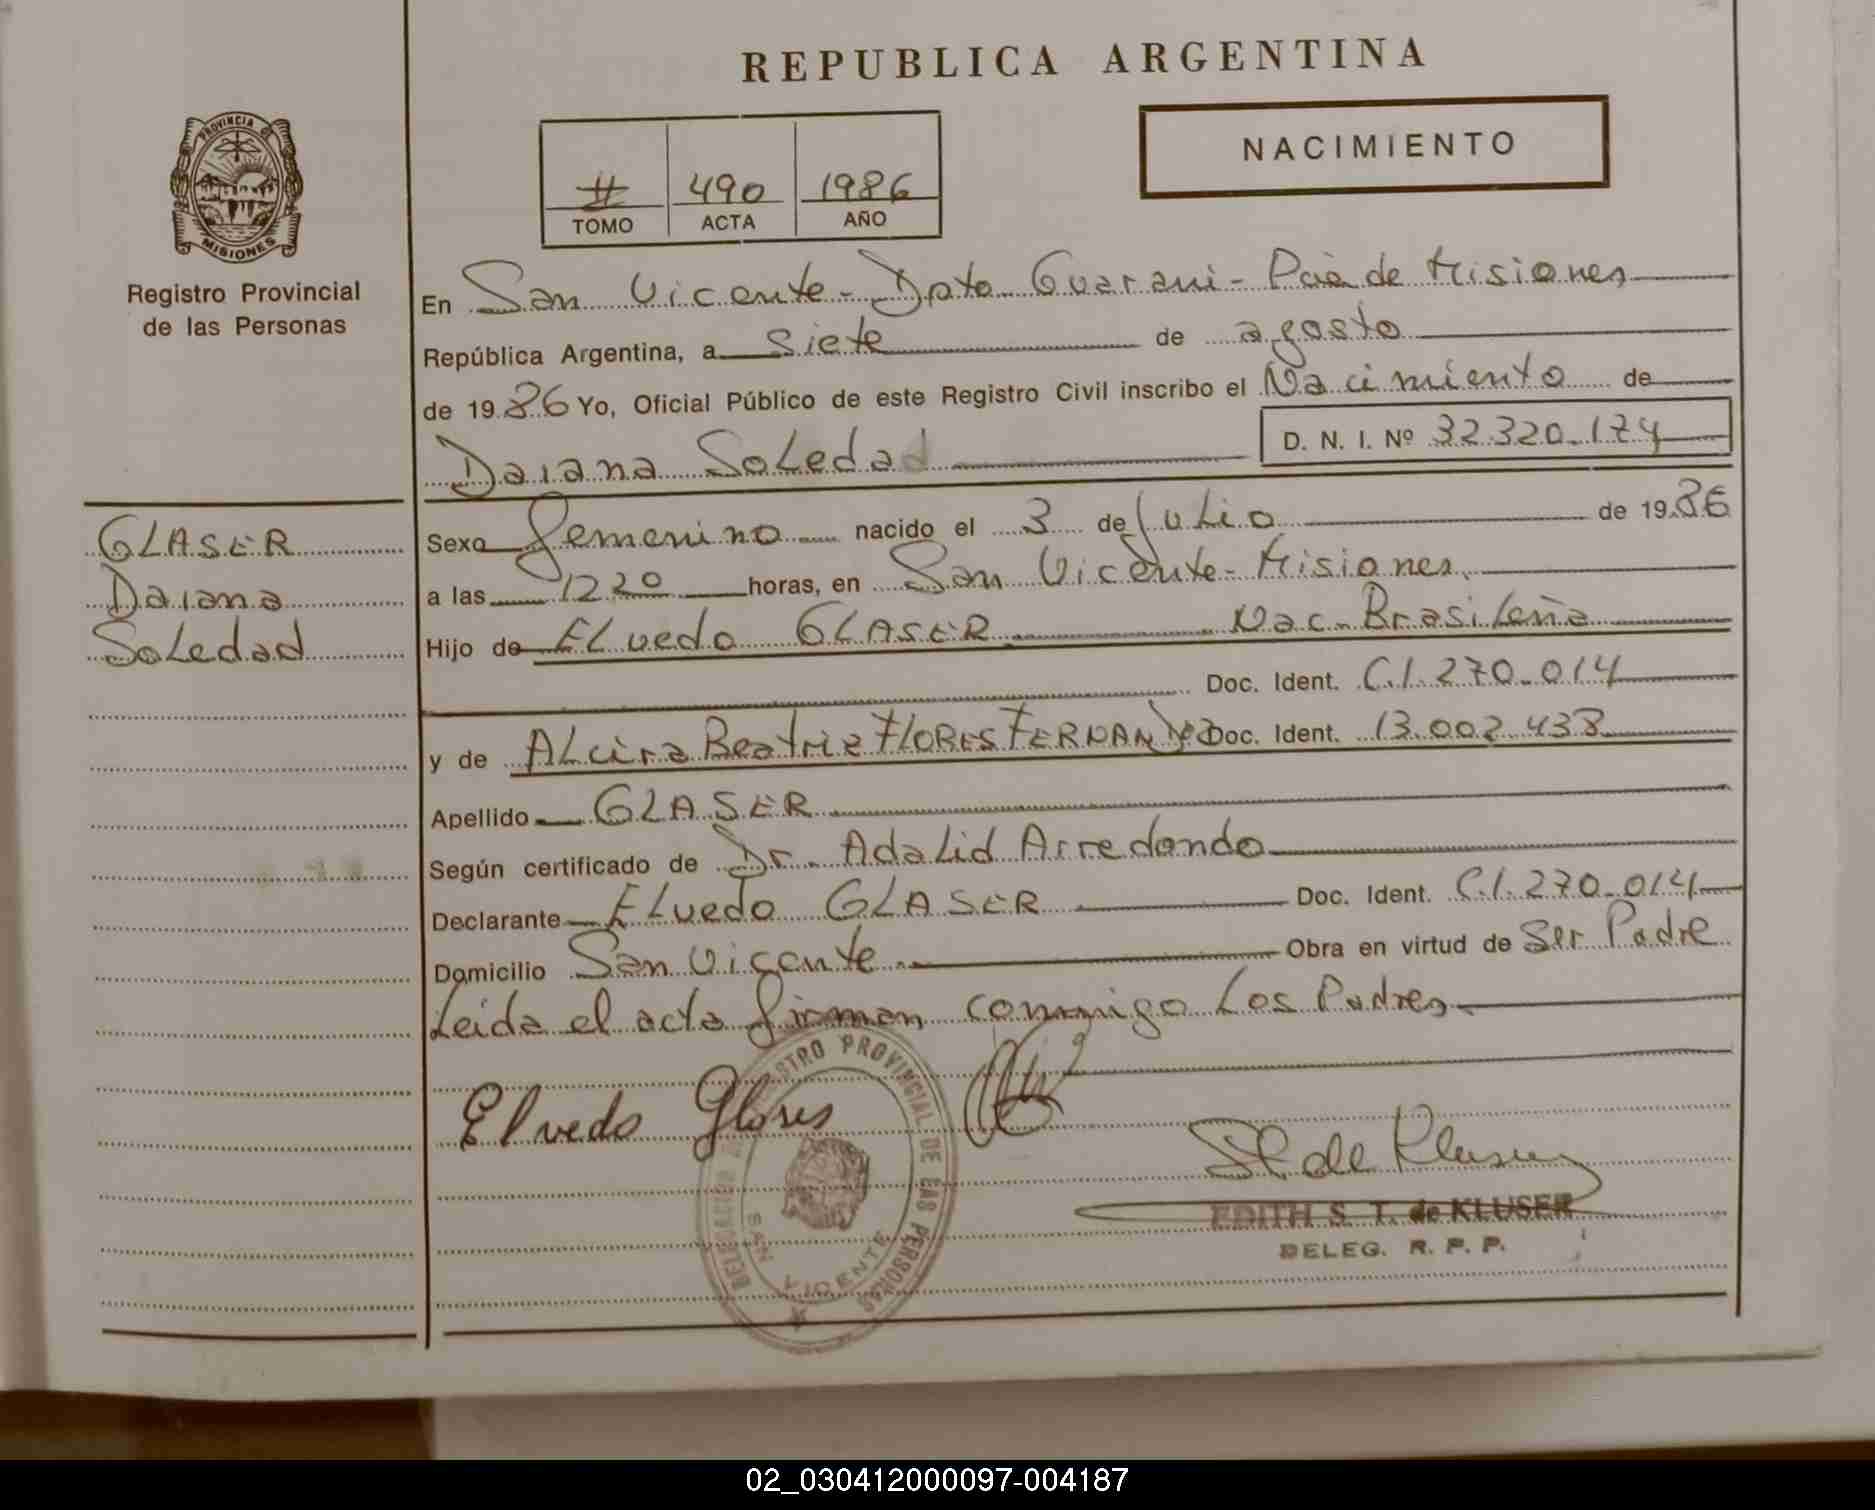 REPUBLICA ARGENTINA
NACIMIENTO
PROVINCIA DE
MISIONES
490 1986
TOMO ACTA AÑO
Registro Provincial
de las Personas
En San Vicente - Dpto Guarani - Pcia de Misiones
República Argentina, a siete de agosto
de 1986 Yo, Oficial Público de este Registro Civil inscribo el Nacimiento de
Daiana Soledad D. N. I. Nº 32.320.174
GLASER
Daiana
Soledad
Sexo Femenino nacido el 3 de Julio de 1986
a las 12 20 horas, en San Vicente - Misiones
Hijo de ELvedo GLASER Nac. Brasileña
Doc. Ident. C.I. 270.014
y de ALcira Beatriz FLORES FERNANDEZ Doc. Ident. 13.002.438
Apellido GLASER
Según certificado de Dr. Adalid Arredondo
Declarante ELvedo GLASER Doc. Ident. C.I. 270.014
Domicilio San Vicente Obra en virtud de Ser Padre
Leida el acta firman conmigo Los Padres
Elvedo Glores
DELEGACION REGISTRO PROVINCIAL DE LAS PERSONAS
SAN VICENTE
S T de Kluser
EDITH S. T. de KLUSER
DELEG. R. P. P.
02_030412000097-004187